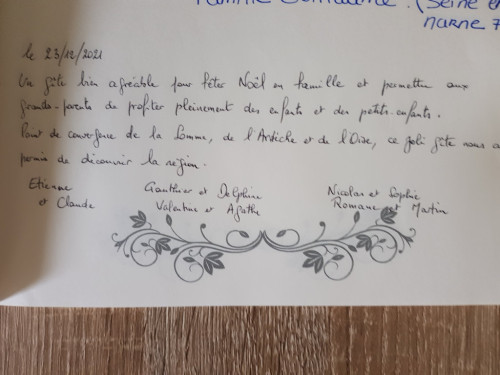 Famille Guillaume. (Seine et
MARNE 7
le 23/12/2021
Un gîte bien agréable pour fêter Noël en famille et permettre aux
grands-parents de profiter pleinement des enfants et des petits-enfants.
Point de convergence de la Somme, de l'Ardèche et de l'Oise, ce joli gîte nous a
permis de découvrir la région.
Etienne
et Claude
Gauthier et Delphine
Valentine et Agathe
Nicolas et Sophie
Romane et Martin